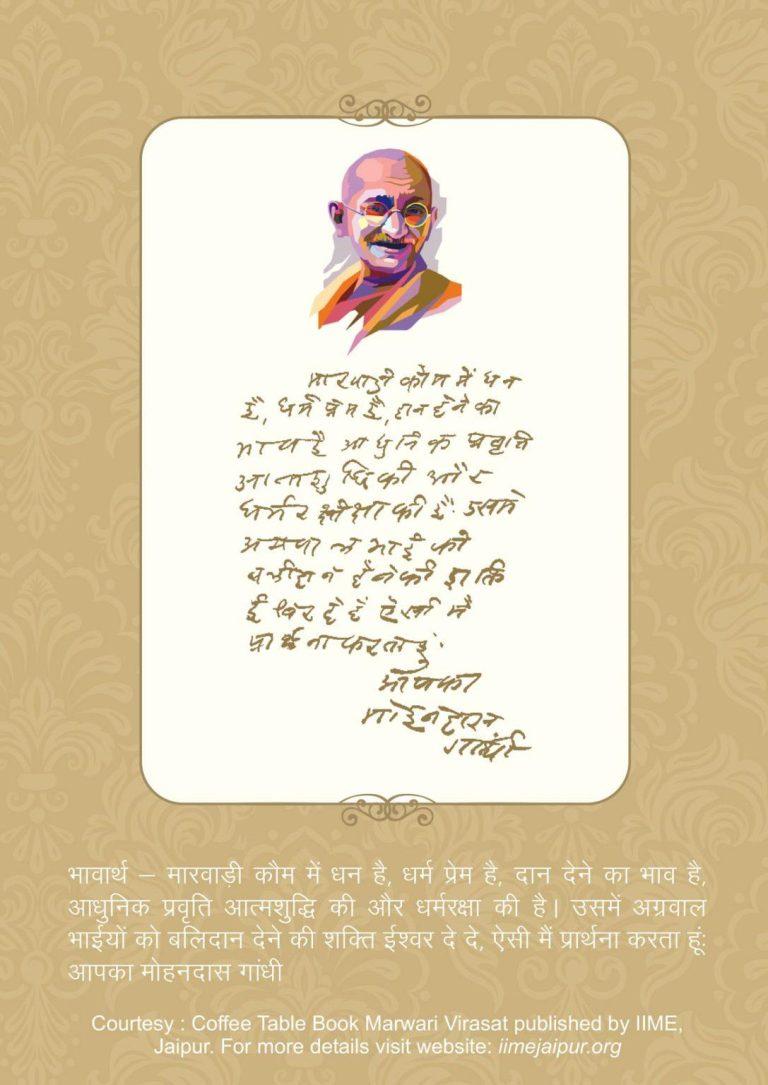 मारवाड़ी कौम में धन
है, धर्म प्रेम है, दान देने का
भाव है आधुनिक प्रवृत्ति
आत्मशुद्धि की और
धर्मरक्षा की है. उसमें
अग्रवाल भाई को
बलीदान देने की शक्ति
ईश्वर दे दें ऐसी मैं
प्रार्थना करता हुं.
आपका
मोहनदास
गांधी
भावार्थ – मारवाड़ी कौम में धन है, धर्म प्रेम है, दान देने का भाव है,
आधुनिक प्रवृति आत्मशुद्धि की और धर्मरक्षा की है। उसमें अग्रवाल
भाईयों को बलिदान देने की शक्ति ईश्वर दे दे, ऐसी मैं प्रार्थना करता हूं:
आपका मोहनदास गांधी
Courtesy : Coffee Table Book Marwari Virasat published by IIME,
Jaipur. For more details visit website: iimejaipur.org